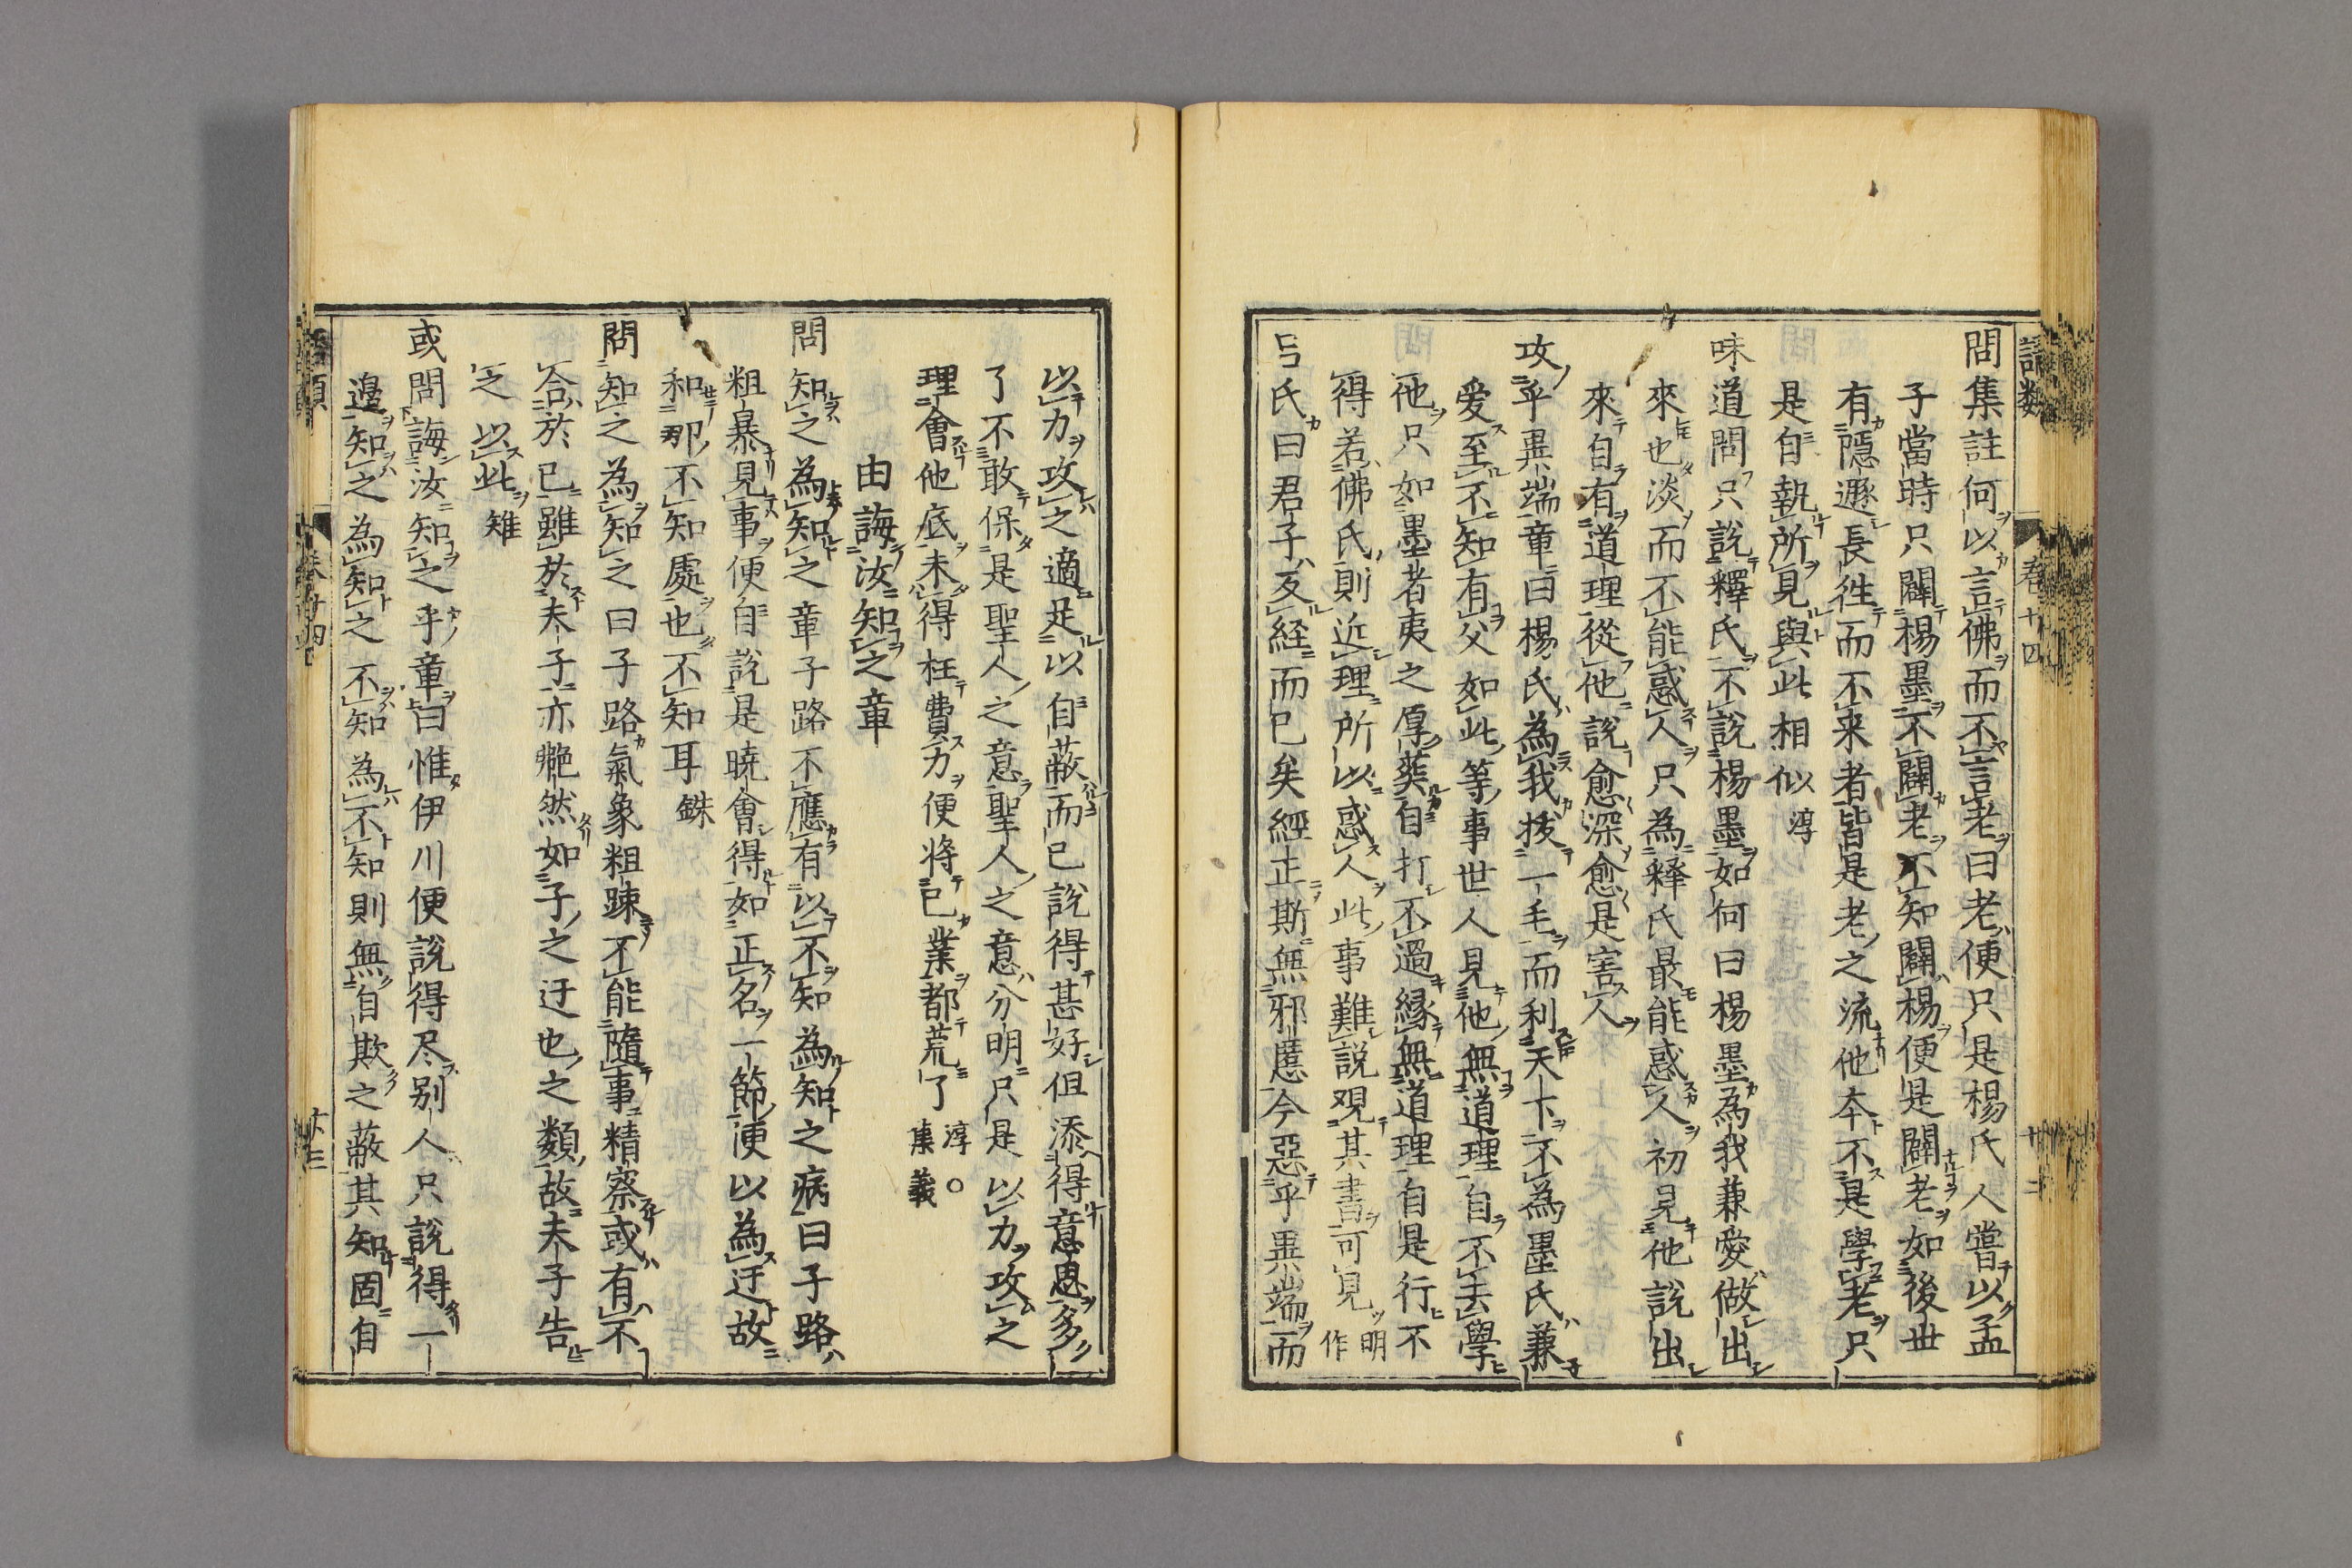 語類 卷十四 十二
問集註何以言佛而不言老曰老便只是楊氏人嘗以孟
子當時只闢楊墨不闢老不知闢楊便是闢老如後世
有隱遯長徃而不来者皆是老之流他本不是學老只
是自執所見與此相似 淳
味道問只說釋氏不說楊墨如何曰楊墨為我兼愛做出
來也淡而不能惑人只為释氏最能惑人初見他說出
來自有道理從他說愈深愈是害人
攻乎異端章曰楊氏為我拔一毛而利天下不為墨氏兼
愛至不知有父如此等事世人見他無道理自不去學
他只如墨者夷之厚葬自打不過緣無道理自是行不
得若佛氏則近理所以惑人此事難說观其書可見 明作
呂氏曰君子反経而已矣經正斯無邪慝今惡乎異端而
以力攻之適足以自蔽而已說得甚好但添得意思多
了不敢保是聖人之意聖人之意分明只是以力攻之
理會他底未得枉費力便将已業都荒了 淳○集義
由誨汝知之章
問知之為知之章子路不應有以不知為知之病曰子路
粗暴見事便自說是曉會得如正名一節便以為迂故
和那不知處也不知耳 銖
問知之為知之曰子路氣象粗踈不能隨事精察或有不
合於已雖於夫子亦艴然如子之迂也之類故夫子告
之以此 雉
或問誨汝知之乎章曰惟伊川便說得尽别人只說得一
邊知之為知之不知為不知則無自欺之蔽其知固自
語類 卷十四 十三